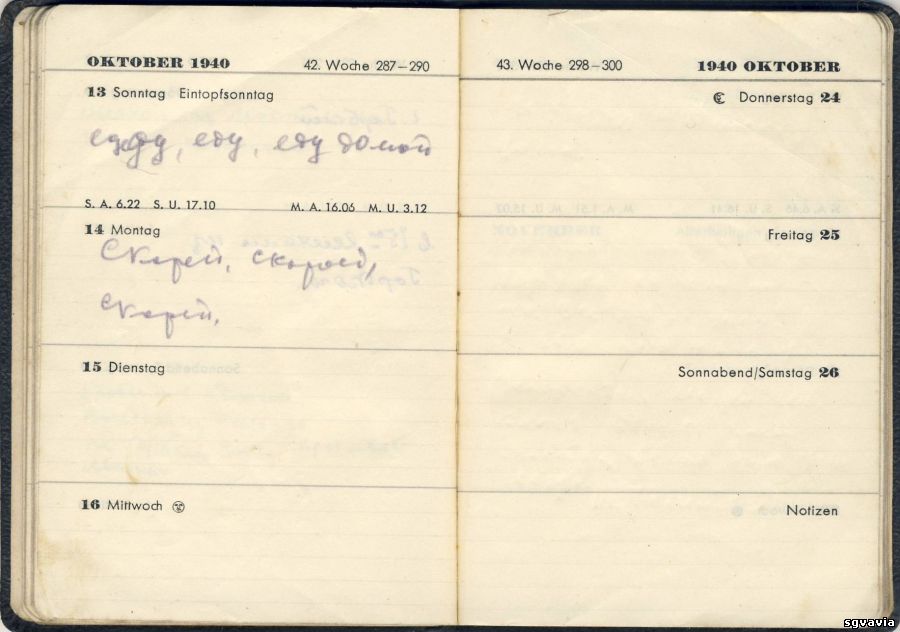 OKTOBER 1940 42. Woche 287–290
13 Sonntag Eintopfsonntag
еду, еду, еду домой
S. A. 6.22 S. U. 17.10 M. A. 16.06 M. U. 3.12
14 Montag
Скорей, скорей,
скорей.
15 Dienstag
16 Mittwoch
43. Woche 298–300 1940 OKTOBER
Donnerstag 24
Freitag 25
Sonnabend/Samstag 26
Notizen
sgvavia